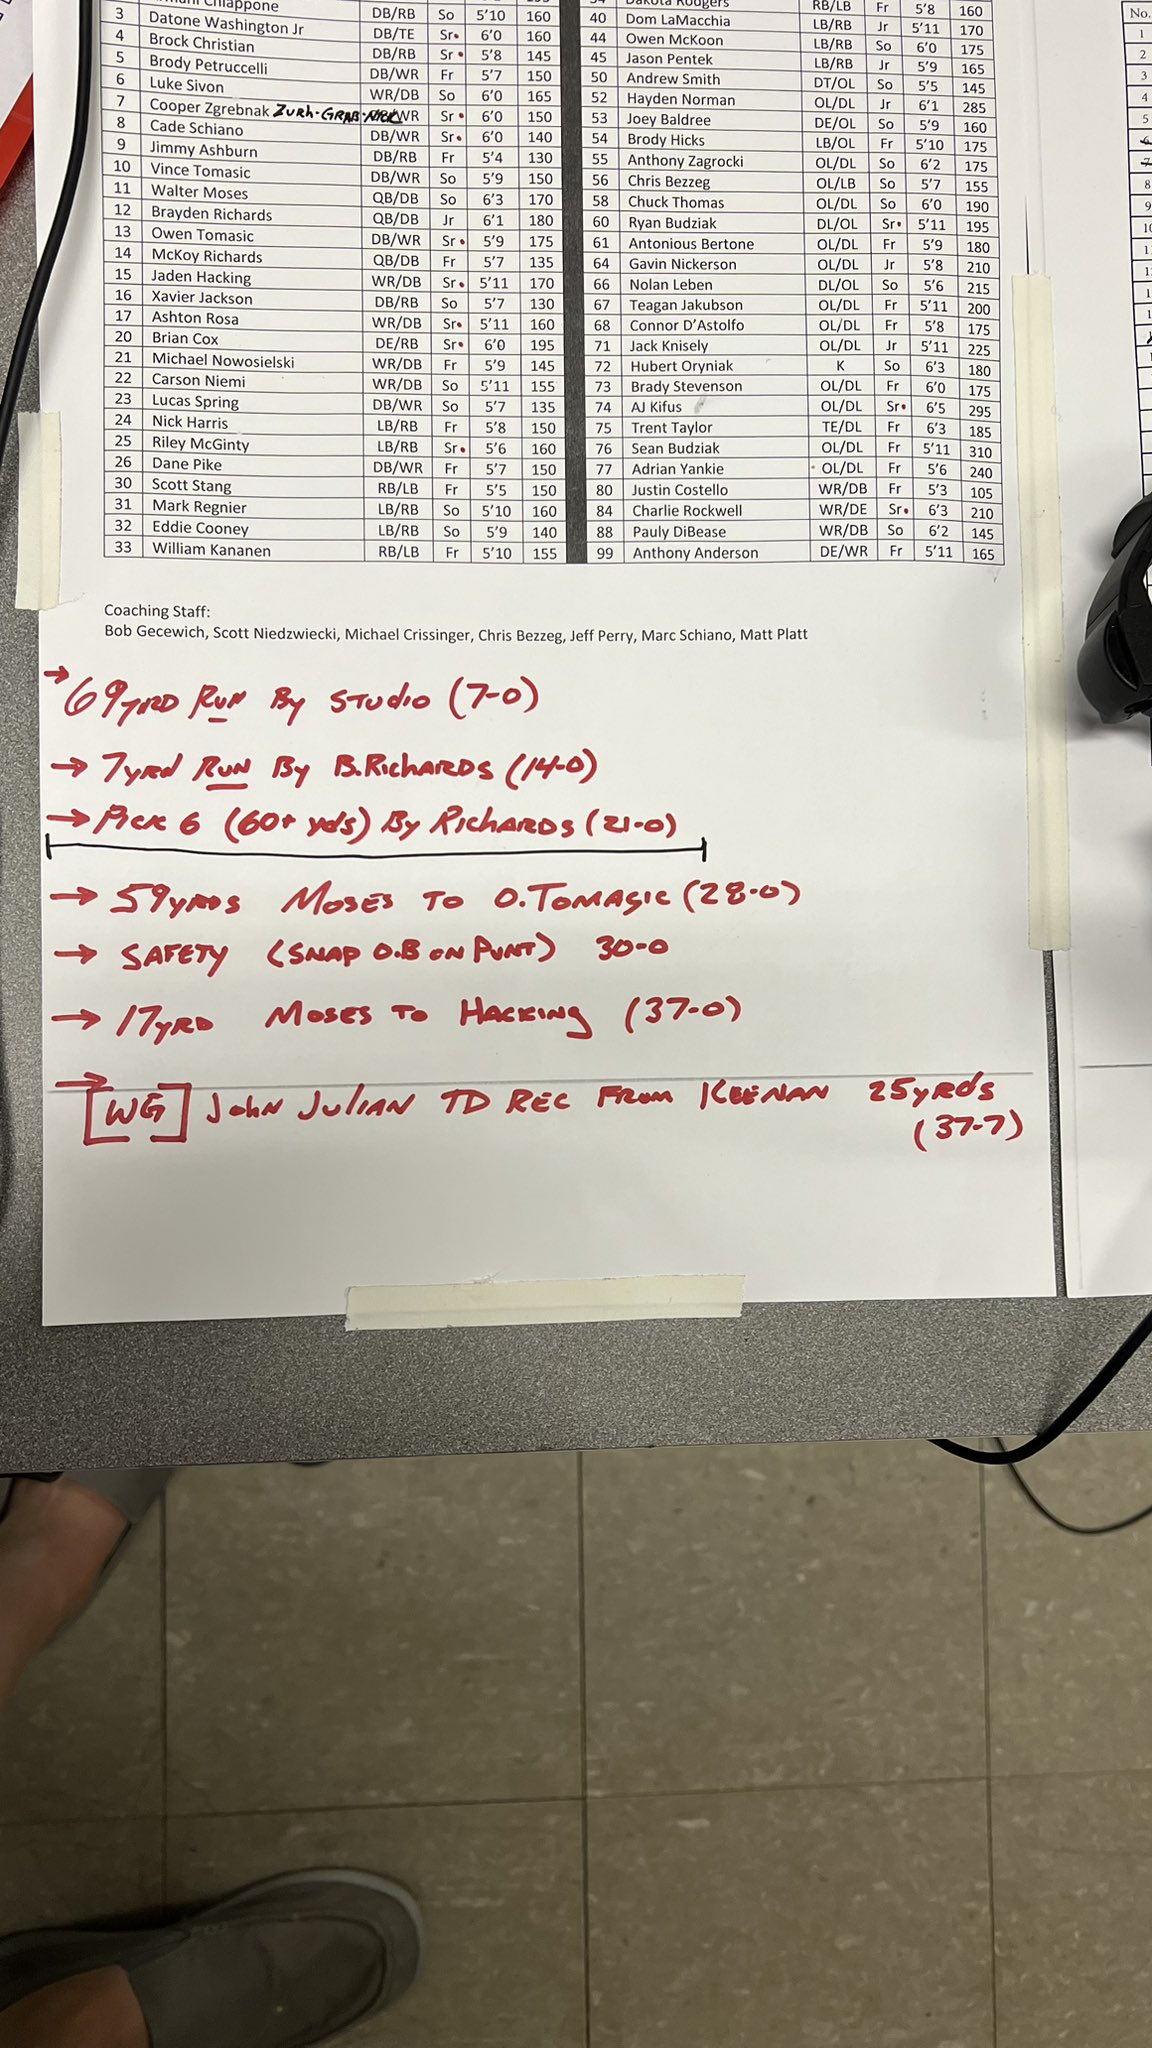 Chiappone
3 Datone Washington Jr DB/RB So 5'10 160
4 Brock Christian DB/TE Sr. 6'0 160
5 Brody Petruccelli DB/RB Sr. 5'8 145
6 Luke Sivon DB/WR Fr 5'7 150
7 Cooper Zgrebnak ZURH-GRAB-NICK WR/DB So 6'0 165
8 Cade Schiano WR Sr. 6'0 150
9 Jimmy Ashburn DB/WR Sr. 6'0 140
10 Vince Tomasic DB/RB Fr 5'4 130
11 Walter Moses DB/WR So 5'9 150
12 Brayden Richards QB/DB So 6'3 170
13 Owen Tomasic QB/DB Jr 6'1 180
14 McKoy Richards DB/WR Sr. 5'9 175
15 Jaden Hacking QB/DB Fr 5'7 135
16 Xavier Jackson WR/DB Sr. 5'11 170
17 Ashton Rosa DB/RB So 5'7 130
20 Brian Cox WR/DB Sr. 5'11 160
21 Michael Nowosielski DE/RB Sr. 6'0 195
22 Carson Niemi WR/DB Fr 5'9 145
23 Lucas Spring WR/DB So 5'11 155
24 Nick Harris DB/WR So 5'7 135
25 Riley McGinty LB/RB Fr 5'8 150
26 Dane Pike LB/RB Sr. 5'6 160
30 Scott Stang DB/WR Fr 5'7 150
31 Mark Regnier RB/LB Fr 5'5 150
32 Eddie Cooney LB/RB So 5'10 160
33 William Kananen LB/RB So 5'9 140
RB/LB Fr 5'10 155
Dakota Rodgers RB/LB Fr 5'8 160
40 Dom LaMacchia LB/RB Jr 5'11 170
44 Owen McKoon LB/RB So 6'0 175
45 Jason Pentek LB/RB Jr 5'9 165
50 Andrew Smith DT/OL So 5'5 145
52 Hayden Norman OL/DL Jr 6'1 285
53 Joey Baldree DE/OL So 5'9 160
54 Brody Hicks LB/OL Fr 5'10 175
55 Anthony Zagrocki OL/DL So 6'2 175
56 Chris Bezzeg OL/LB So 5'7 155
58 Chuck Thomas OL/DL So 6'0 190
60 Ryan Budziak DL/OL Sr. 5'11 195
61 Antonious Bertone OL/DL Fr 5'9 180
64 Gavin Nickerson OL/DL Jr 5'8 210
66 Nolan Leben DL/OL So 5'6 215
67 Teagan Jakubson OL/DL Fr 5'11 200
68 Connor D'Astolfo OL/DL Fr 5'8 175
71 Jack Knisely OL/DL Jr 5'11 225
72 Hubert Oryniak K So 6'3 180
73 Brady Stevenson OL/DL Fr 6'0 175
74 AJ Kifus OL/DL Sr. 6'5 295
75 Trent Taylor TE/DL Fr 6'3 185
76 Sean Budziak OL/DL Fr 5'11 310
77 Adrian Yankie OL/DL Fr 5'6 240
80 Justin Costello WR/DB Fr 5'3 105
84 Charlie Rockwell WR/DE Sr. 6'3 210
88 Pauly DiBease WR/DB So 6'2 145
99 Anthony Anderson DE/WR Fr 5'11 165
Coaching Staff:
Bob Gecewich, Scott Niedzwiecki, Michael Crissinger, Chris Bezzeg, Jeff Perry, Marc Schiano, Matt Platt
→ 69yrd Run By Studio (7-0)
→ 7yrd Run By B.Richards (14-0)
→ Pick 6 (60+ yds) By Richards (21-0)
→ 59yrds Moses to O.Tomasic (28-0)
→ SAFETY (SNAP O.B on Punt) 30-0
→ 17yrd Moses to Hacking (37-0)
→ [WG] John Julian TD REC From Keenan 25yrds
(37-7)
No.
1
2
3
4
5
6
7
8
9